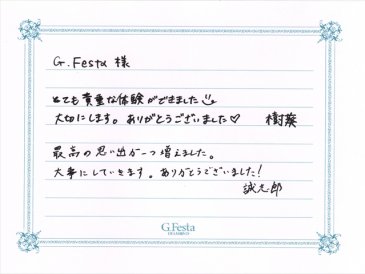 G.Festa 様
とても貴重な体験ができました
大切にします。ありがとうございました♡ 樹葵
最高の思い出が一つ増えました。
大事にしていきます。ありがとうございました!
誠志郎
G.Festa